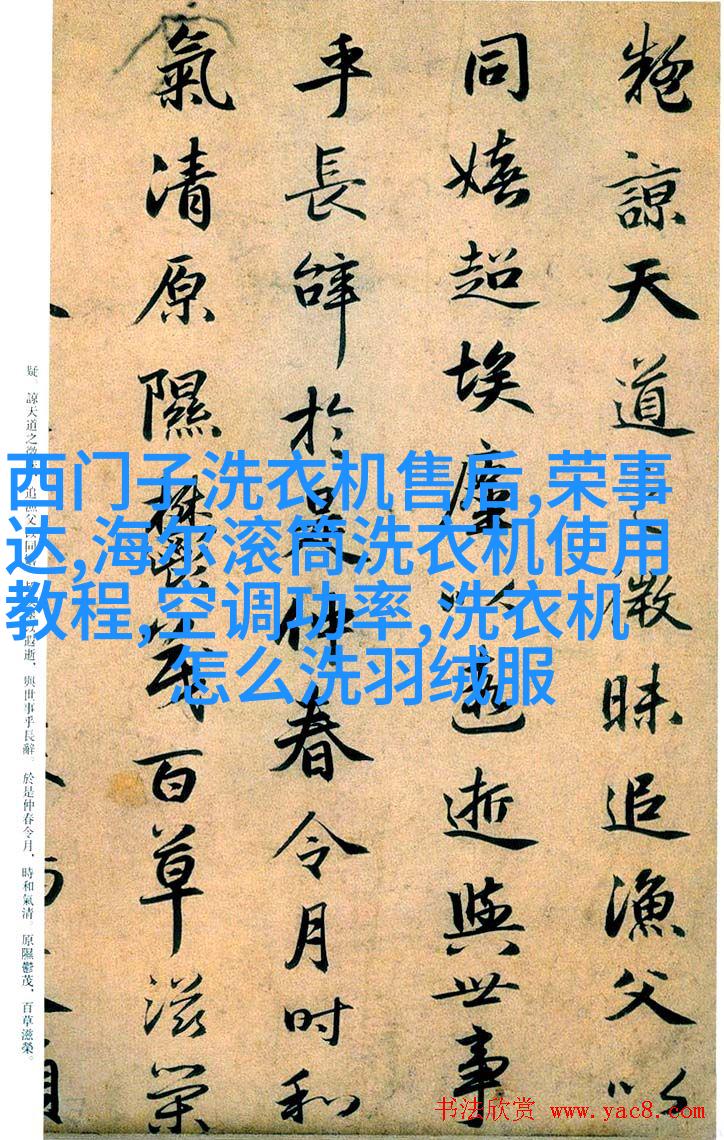 疑諒天道之微昧追漁父以
同嬉超埃塵以遐逝與世事
乎長辭於是仲春令月時和
氣清原隰鬱茂百草滋榮
疑。諒天道之微 追漁父以同 遐逝，與世事乎長辭。於是仲春令月，時和氣清。原隰鬱茂，百草滋榮。
西门子洗衣机售后,荣事
达,海尔滚筒洗衣机使用
教程,空调功率,洗衣机
怎么洗羽绒服
书法欣赏 www.yac8.com